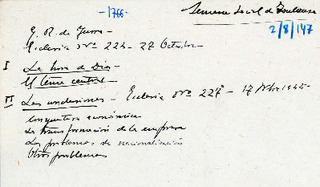 -1766-
Semaine Social de Toulouse
2/8/147
G. R. de Yurre -
Ecclesia nº 224 - 27 Octubre -
I La hora de Dios -
El tema central -
II Las conclusiones - Ecclesia nº 227 - 17 Nbre 1945-
Conyuntura económica
La transformación de la empresa
Los problemas de nacionalización
Otros problemas